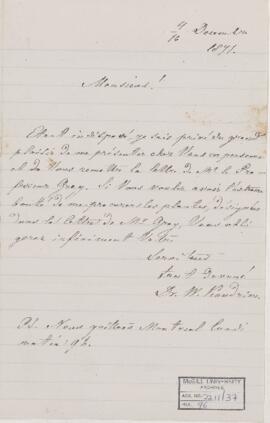 4/16 Decembre
1871.
Monsieur!
Etant indisposé je suis privé du grand
plaisir de me présenter chez Vous en personne
et de Vous remettre la lettre de Mr. le Pro-
fesseur Gray. Si Vous voulez avoir l'extrême
bonté de me procurer les plantes désignées
dans la lettre de Mr. Gray, Vous obli-
gerez infiniment Votre
Serviteur
tout dévoué
Dr. W.
Ps. Nous quittons Montreal Lundi
matin 9 h.
McGILL UNIVERSITY
ARCHIVES
ACC. NO. 2211/37
REF. 96